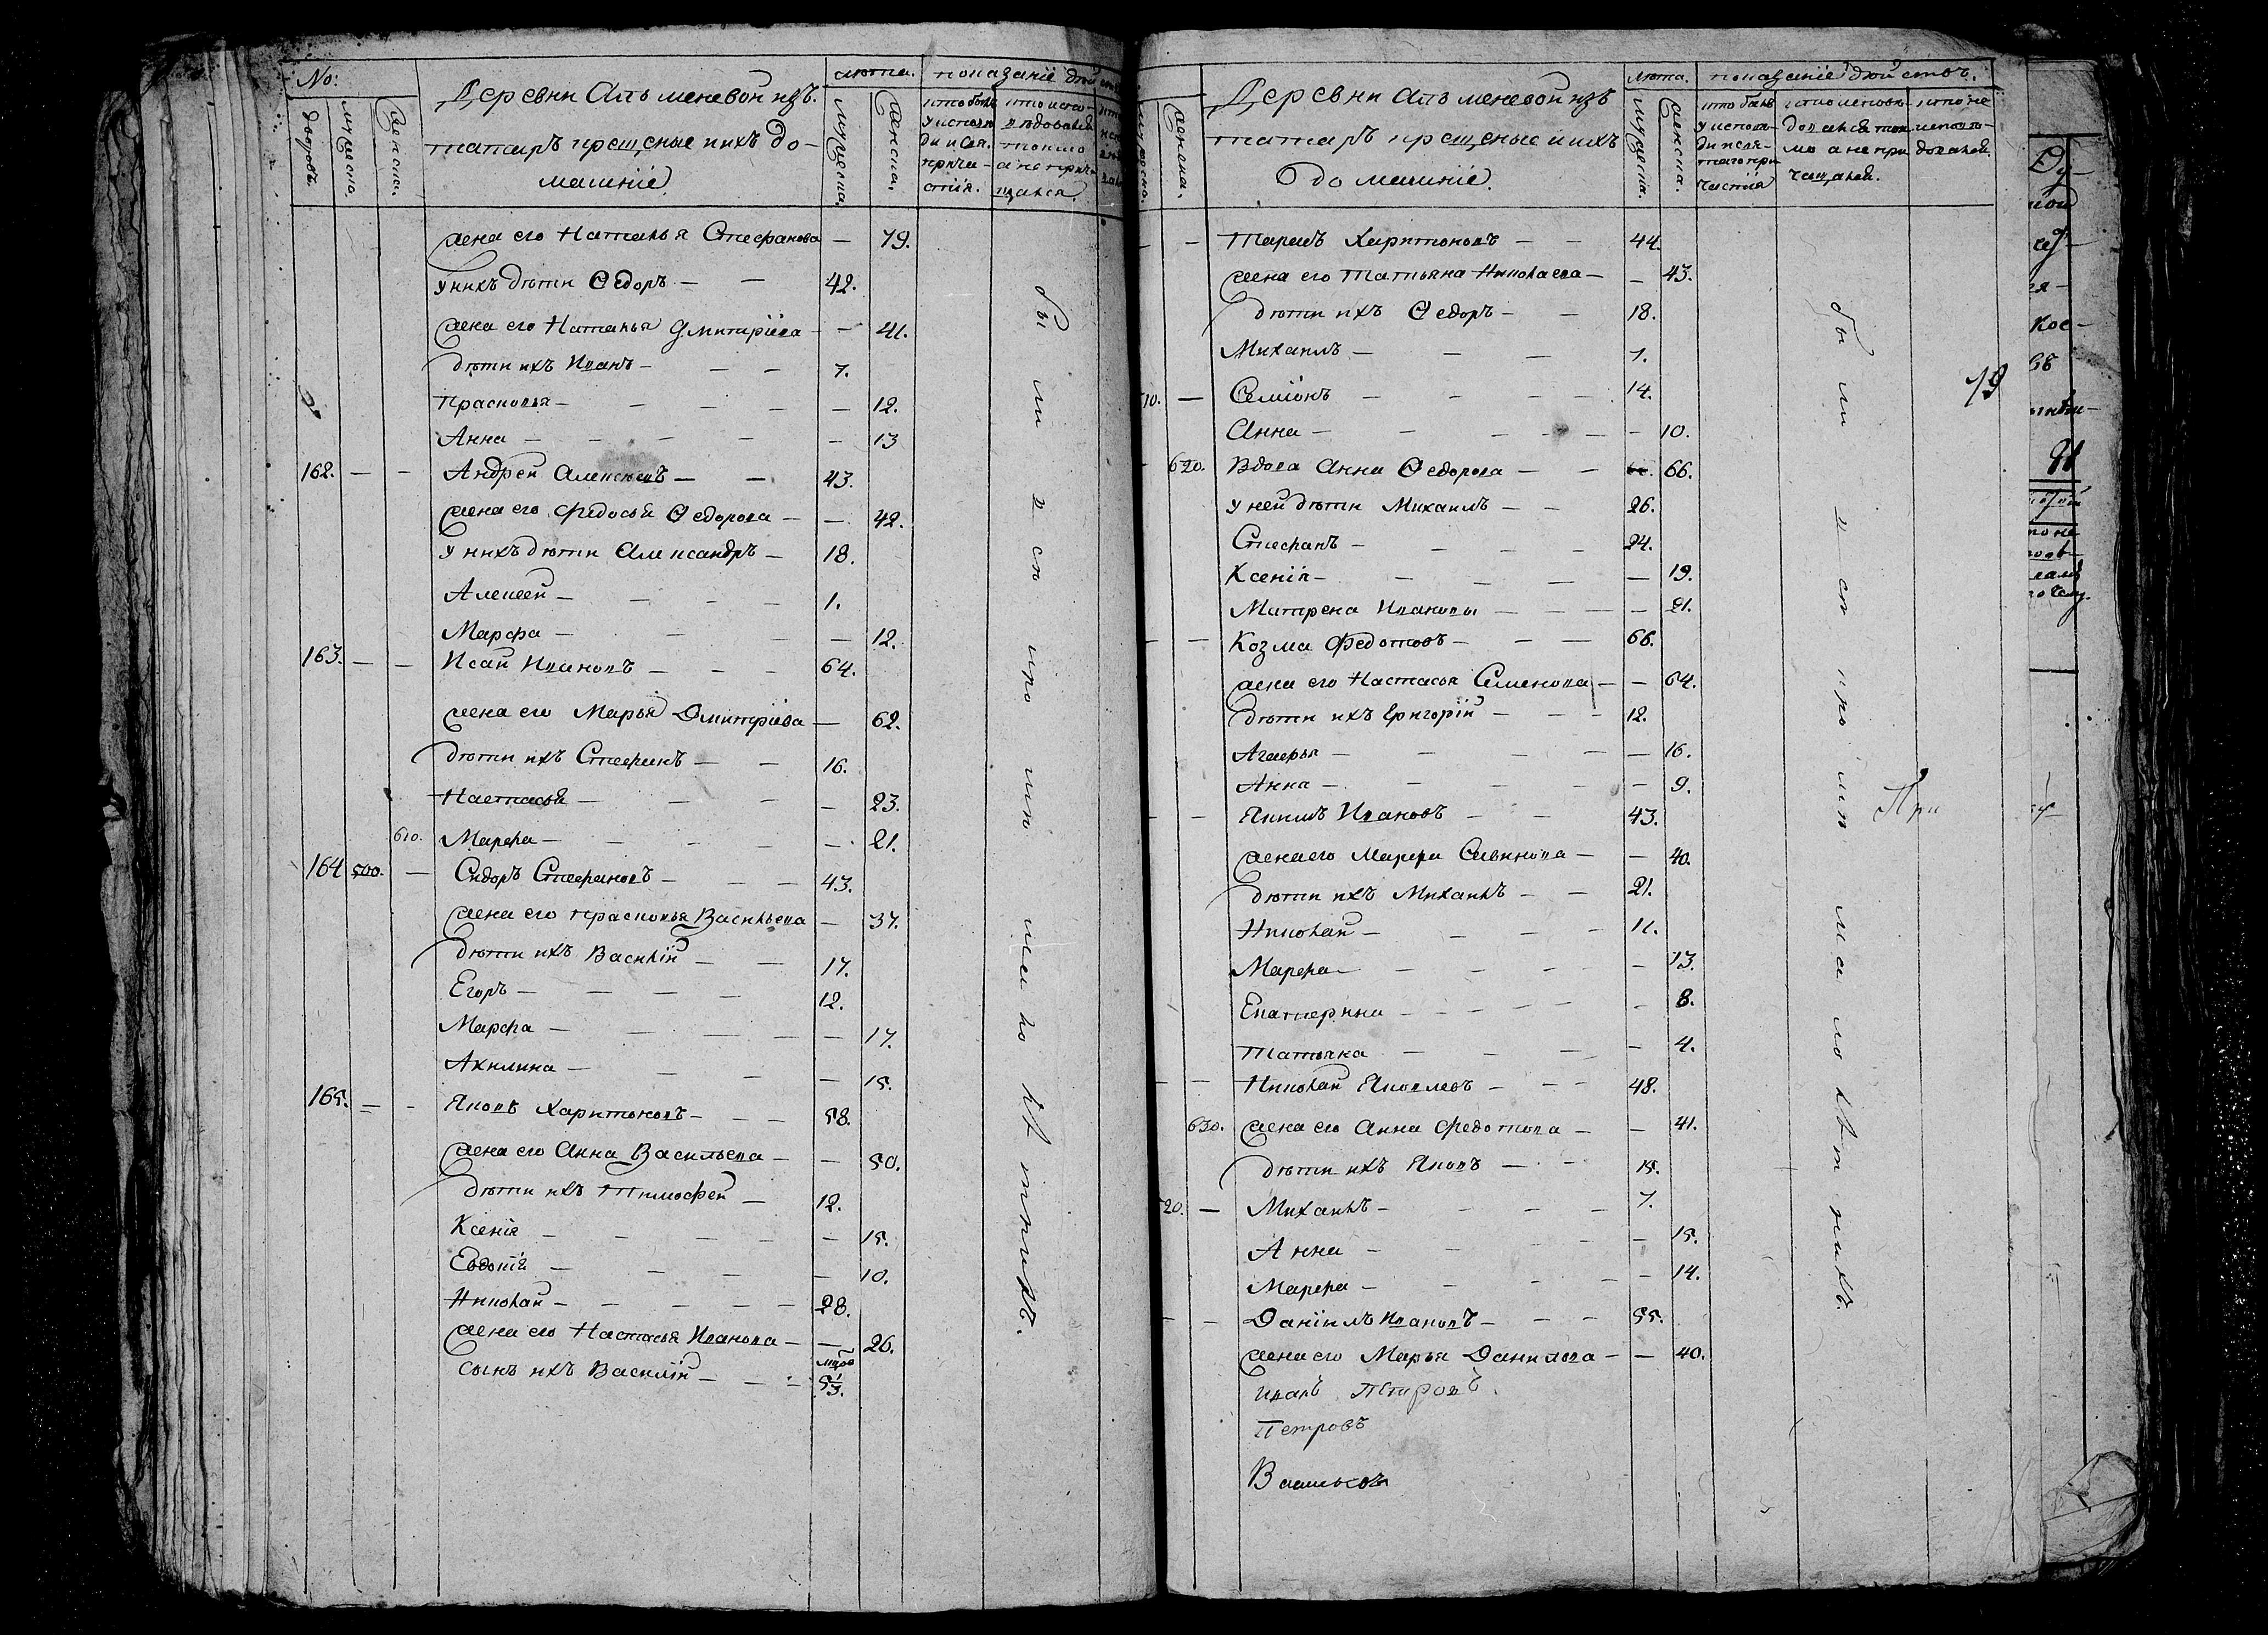 No:
дворовъ.
мужеска.
женска.
Деревни Альменевой изъ
татаръ крещеные и ихъ до-
машніе.
лѣта.
мужеска.
женска.
показаніе дѣй
кто былъ
у испове
ди и свя.
прича-
стія.
кто испо-
вѣдовался
токмо
а не прича
щался.
жена его Наталья Стефанова — 79.
у нихъ дѣти Ѳедоръ — — 42.
жена его Наталья Дмитріева — 41.
дѣти ихъ Иванъ — — — 7.
Прасковья — — — — — 12.
Анна — — — — — 13
162. — — Андрей Алексѣевъ — — 43.
жена его Федосья Ѳедорова — — 42.
у нихъ дѣти Александръ — 18.
Алексей — — — — 1.
Марфа — — — — 12.
163. — — Исай Ивановъ — — — 64.
жена его Марья Дмитріева — 62.
дѣти ихъ Стефанъ — — 16.
Настасья — — — — 23.
610. Марфа — — — — — 21.
164 500. — Сидоръ Стефановъ — — — 43.
жена его Прасковья Васильева — 37.
дѣти ихъ Василій — — 17.
Егоръ — — — — 12.
Марфа — — — — — 17.
Акилина — — — — 15.
165. = - Яковъ Харитоновъ — — — 58.
жена его Анна Васильева — — 50.
дѣти ихъ Тимофей — 12.
Ксенія — — — — — 15.
Евдокія — — — — 10.
Николай — — — — — 28.
жена его Настасья Иванова — — 26.
сынъ ихъ Василій — — — 5/3.
бы ли у сп про
женска.
Деревни Альменевой изъ
татаръ крещеные и ихъ
до машніе.
лѣта.
мужеска.
женска.
показаніе дѣйство.
кто былъ
у испове-
ди и свя-
таго при
частія
кто исповѣ-
довался ток
мо а не при
чащался.
кто не
исповѣ-
довался.
— — Тарасъ Харитоновъ — — 44.
жена его Татьяна Николаева — — 43.
дѣти ихъ Ѳедоръ — — 18.
Михаилъ — — — 1.
10. — Семіонъ — — — — 14.
19
Анна — — — — — — 10.
620. Вдова Анна Ѳедорова — — 66.
у ней дѣти Михаилъ — — 26.
Стефанъ — — — — 24.
Ксенія — — — — — 19.
Матрена Ивановы — — — — 21.
— — Козма Федотовъ — — — 66.
жена его Настасья Семенова — — 64.
дѣти ихъ Григорій — — — 12.
Агафья — — — — — 16.
Анна — — — — — 9.
— — Якимъ Ивановъ — — 43.
При
жена его Марфа Савинова — — 40.
дѣти ихъ Михаилъ — — 21.
Николай — — — — 11.
Марфа — — — — — 13.
Екатерина — — — — — 8.
Татьяна — — — — 4.
— — Николай Яковлевъ — — — 48.
630. жена его Анна Федотова — — 41.
дѣти ихъ Яковъ — — 15.
20. — Михаилъ — — — — 7.
Анна — — — — — 15.
Марфа — — — — — 14.
— — Даніилъ Ивановъ — — — 55.
жена его Марья Данилова — — 40.
Иванъ Петровъ.
Петровъ